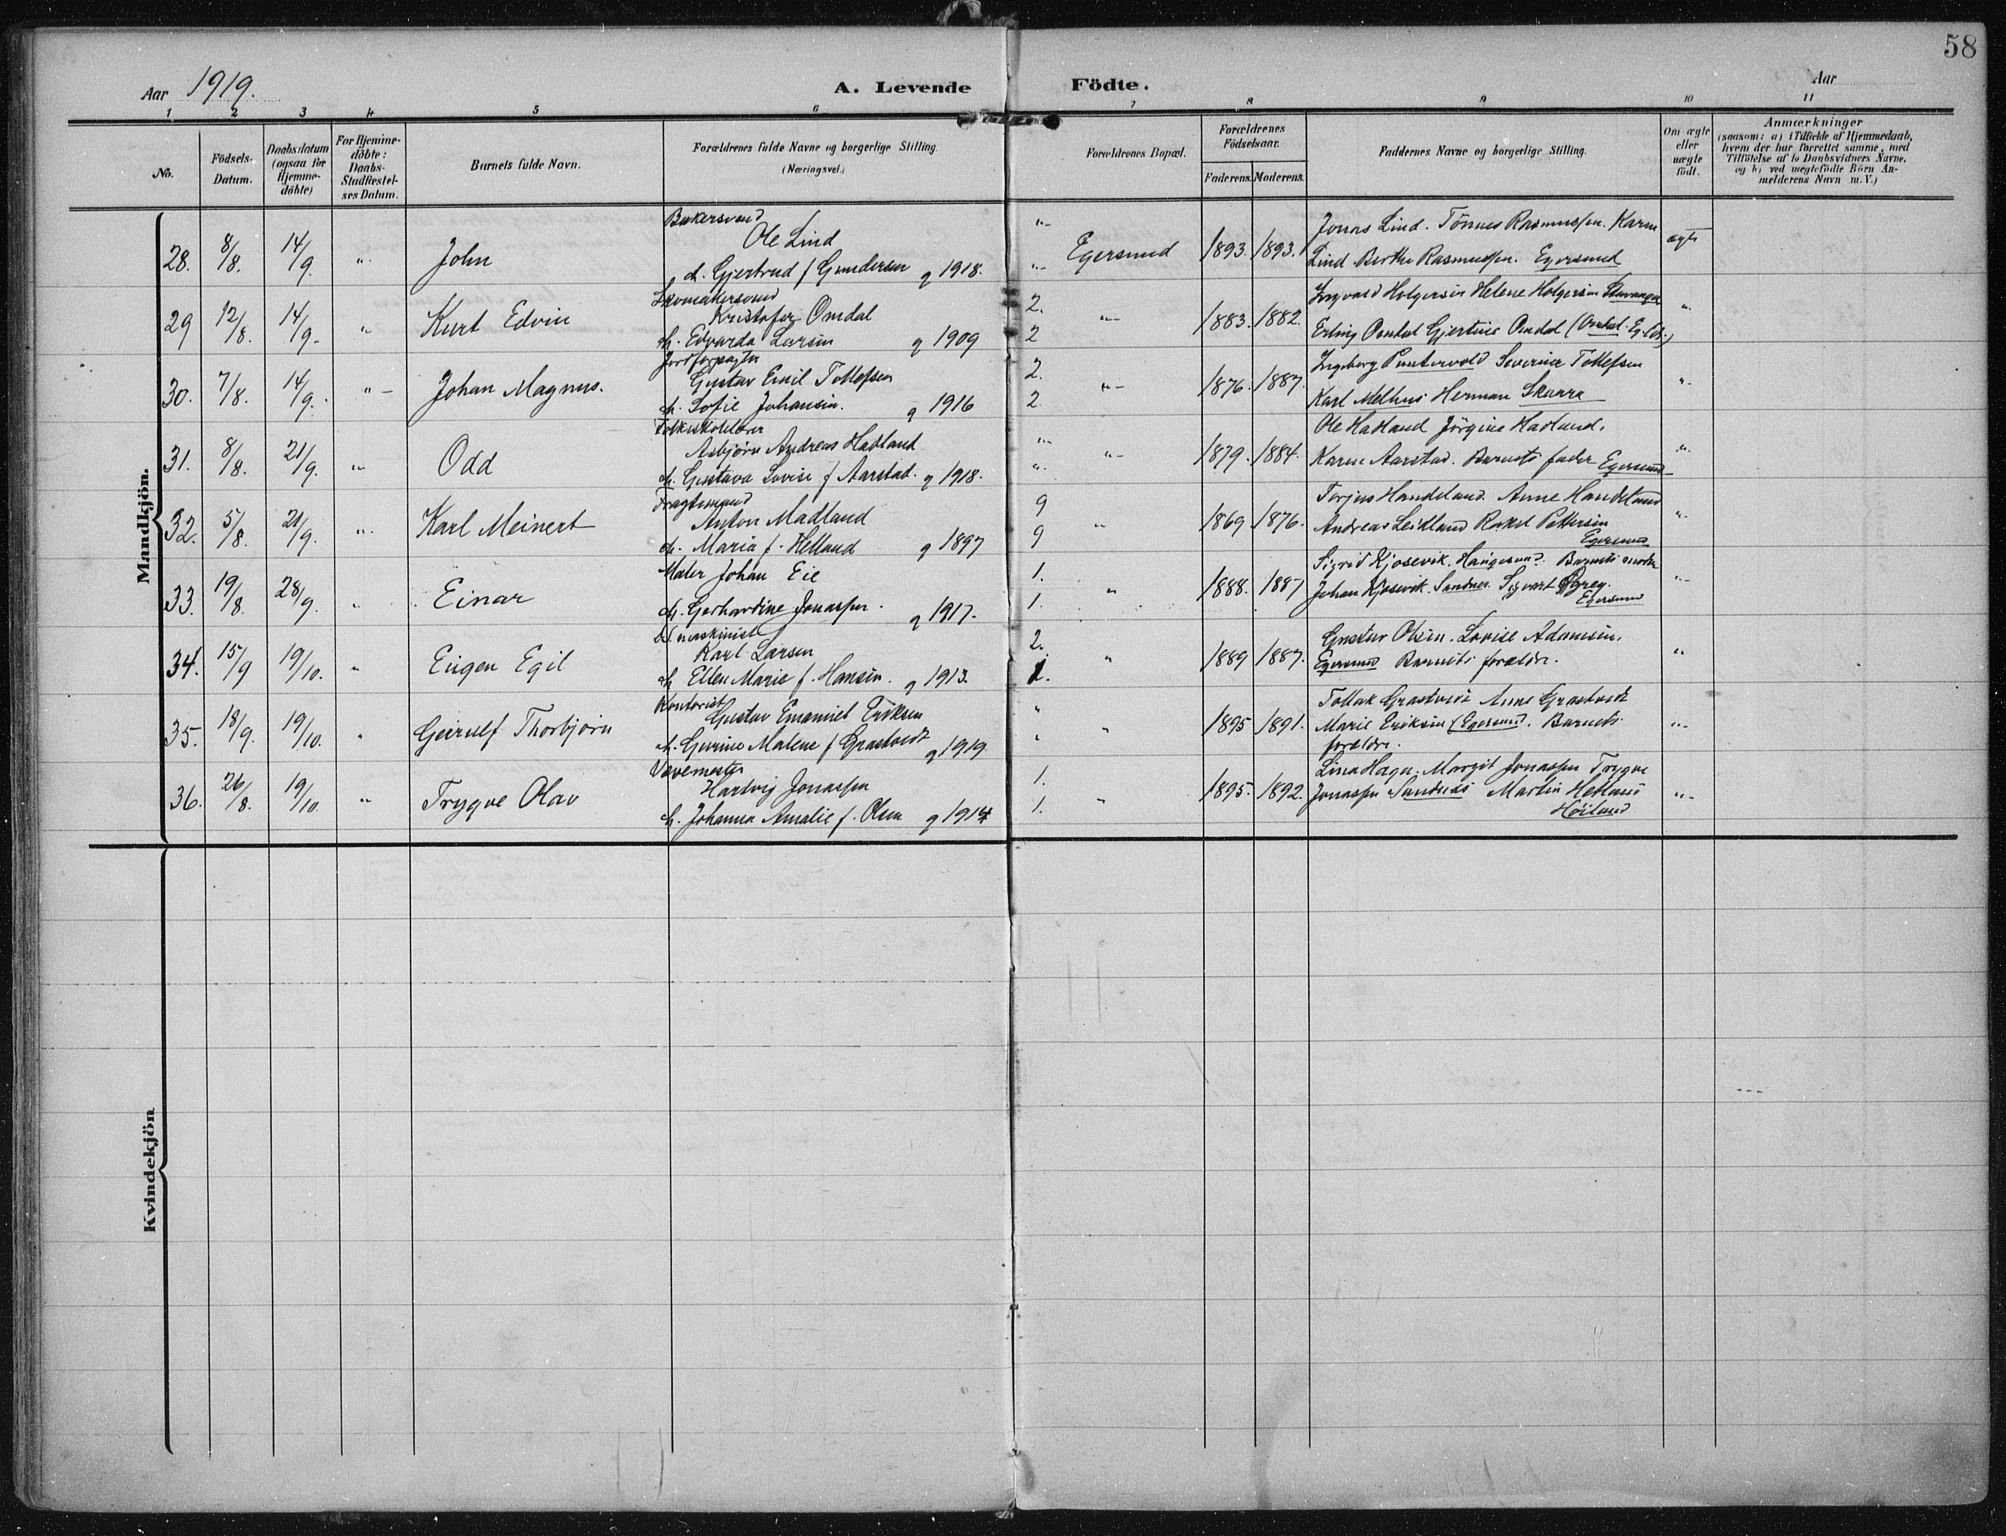 58
Aar 1919.
A. Levende Födte.
Aar
1 2 3 4 5 6 7 8 9 10 11
No.
Födsels-Datum.
Daabsdatum (ogsaa for Hjemme-döbte)
For Hjemme-döbte: Daabs-Stadfæstel-ses Datum.
Barnets fulde Navn.
Forældrenes fulde Navne og borgerlige Stilling. (Næringsvei.)
Forældrenes Bopæl.
Forældrenes Födselsaar.
Faderens. Moderens.
Faddernes Navne og borgerlige Stilling.
Om ægte eller uægte födt.
Anmærkninger
(saasom: a) i Tilfælde af Hjemmedaab,
hvem der har forrettet samme, med
Tilföielse af to Daabsvidners Navne,
og b) ved uægtefödte Börn An-
melderens Navn m. V.)
Mandkjön.
28. 8/8. 14/9. " John
Ole Lind
Gjertrud f Gundersen g 1918.
Egersund 1893. 1893.
Jonas Lind. Tönnes Rasmussen. Karen
Lind. Berthe Rasmussen. Egersund
ægte
29 12/8. 14/9. " Kurt Edvin
Kristofer Omdal
Edvarda Larsen g 1909
2. 2 " 1883. 1882.
Ingvald Holgersen Helene Holgersen Stavanger
Erling Omdal Gjertine Omdal (Omdal. Eg. ldt.)
"
30. 7/8. 14/9. " Johan Magnus.
Jordforpagter
Gustav Emil Tollefsen
Sofie Johansen. g 1916
2. 2. " 1876. 1887.
Ingeborg Puntervold Severine Tollefsen
Karl Melhus Herman Skaara
"
31. 8/8. 21/9. " Odd
Asbjørn Andreas Hadland
Gustava Lovise f Aarstad. g 1918.
" " " 1879. 1884.
Ole Hadland Jørgine Hadland.
Karen Aarstad. Barnets fader Egersund
"
32. 5/8. 21/9. " Karl Meinert
Fragtemand
Anton Madland
Maria f. Helland g 1897
9 9 " 1869. 1876.
Torjus Handeland. Anne Handeland
Andreas Leidland Rakel Pettersen
Egersund
"
33. 19/8. 28/9. " Einar
Maler Johan Eie
Gerhardine Jonassen. g 1917.
1. 1. " 1888. 1887
Sigrid Kjosevik. Haugesund. Barnets moder
Johan Kjosevik. Sandnes. Sigvart
Egersund
"
34. 15/9 19/10. " Eugen Egil
Karl Larsen
Ellen Marie f. Hansen. g 1913.
2. 1. " 1889 1887.
Gustav Olsen. Lovise Adamsen.
Egersund Barnets forældre.
"
35. 18/9. 19/10. " Geirulf Thorbjørn
Kontorist
Gustav Emanuel Eriksen
Gurine Malene f Grastveit g 1919
" " " 1895 1891.
Tollak Grastveit Anne Grastveit
Marie Eriksen (Egersund. Barnets
forældre.
"
36. 26/8. 19/10. " Trygve Olav
Vævemester
Hartvig Jonassen
Johanna Amalie f. Olsen g 1914
1. 1. " 1895. 1892.
Lina Haga. Margit Jonassen Trygve
Jonassen Sandnes Martin Hetland
Høiland
"
Kvindekjön